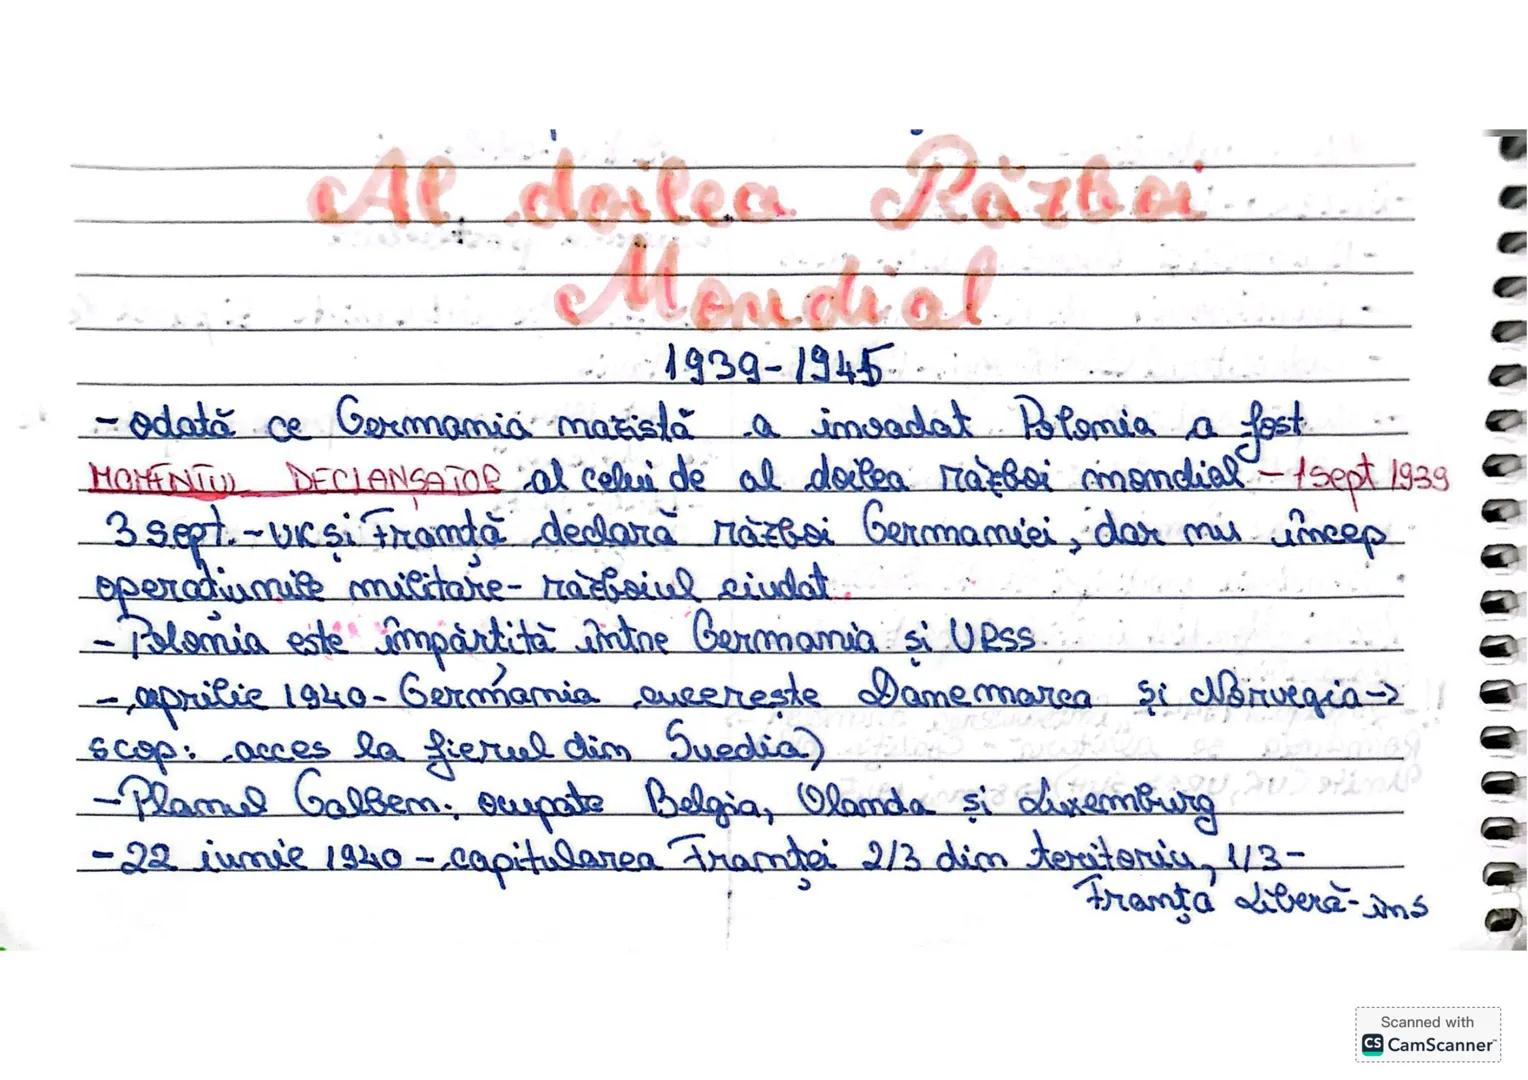 Al doilea Război
Mondial
1939-1945
- odată ce Germania nazistă a invadat Polonia a fost
MOMENTUL DECLANȘATOR al celui de al doilea război mondial - 1 sept 1939
3 sept. - UK și Franță declară război Germaniei, dar nu încep
operațiunile militare - războiul ciudat.
- Polonia este împărțită între Germania și URSS.
- aprilie 1940 - Germania cucerește Danemarca și Norvegia →
scop: acces la fierul din Suedia)
- Planul Galben: ocupate Belgia, Olanda și Luxemburg
- 22 iunie 1940 - capitularea Franței 2/3 din teritoriu, 1/3 -
Franța Liberă - ins
Scanned with
CS CamScanner